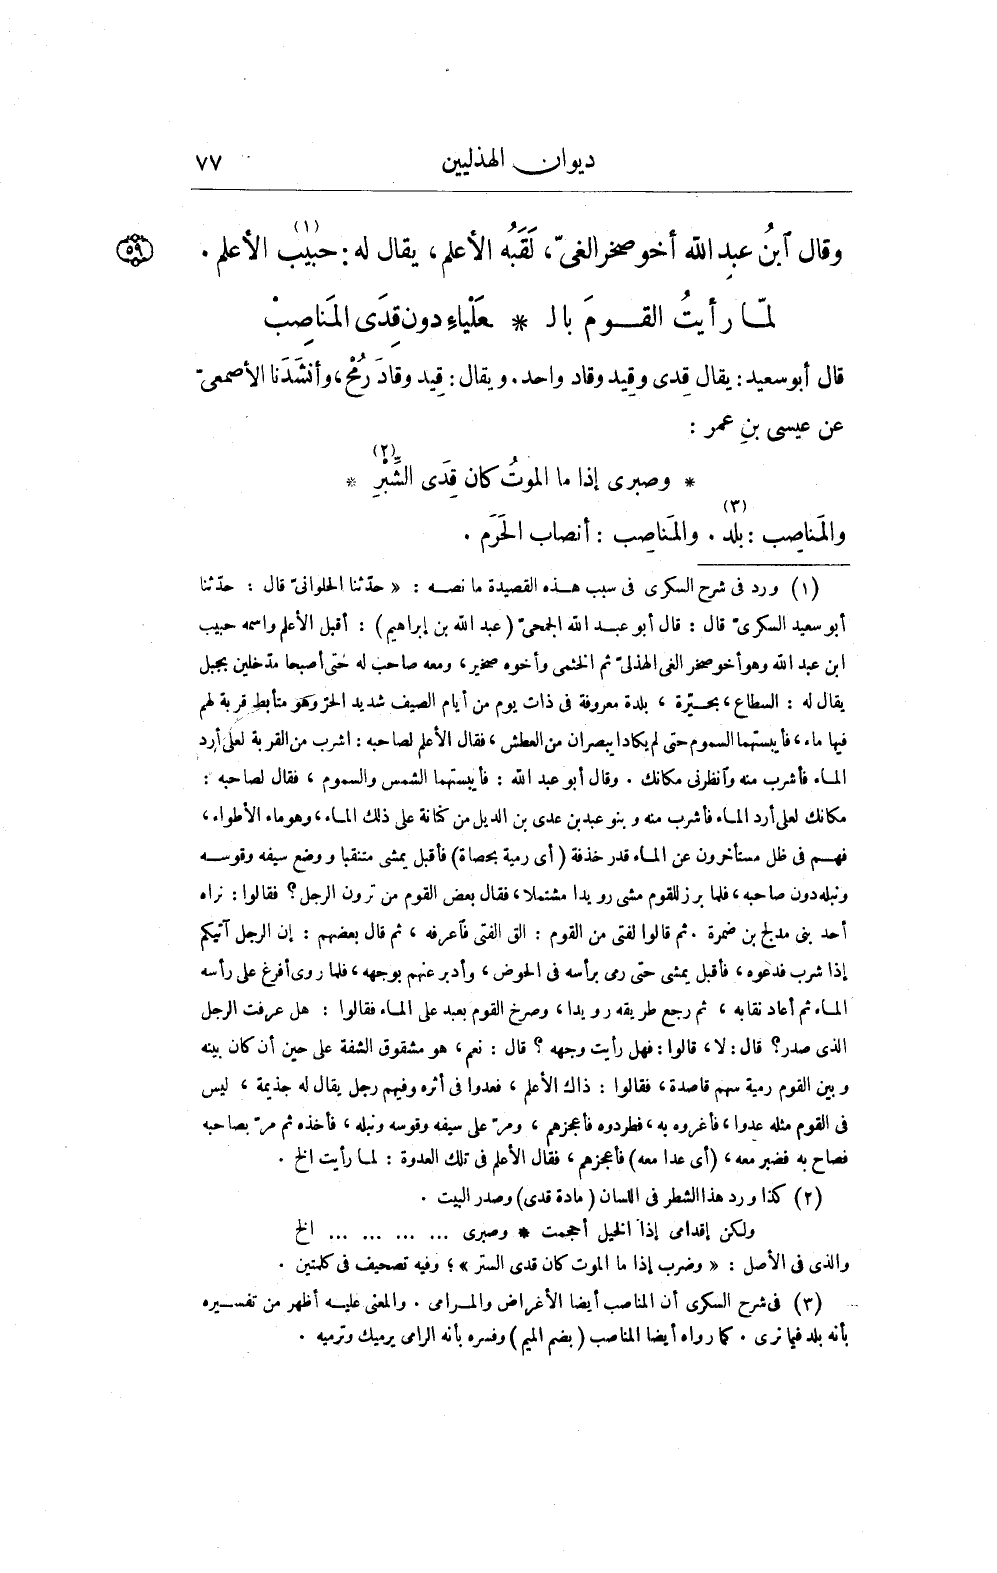 ديوان الهذليين ٧٧
وقال ٱبنُ عبدِ الله أخو صخر الغىّ، لَقَبُه الأعلم، يقال له: حبيب (١) الأعلم . ٥٩
لمّا رأيتُ القومَ بالـ * ـعَلْياءِ دون قِدَى المَناصِبْ
قال أبو سعيد: يقال قِدى وقِيد وقاد واحد. ويقال: قِيد وقادَ رُمْحٍ، وأنشَدَنا الأصمعىّ
عن عيسى بنِ عمر :
* وصبرى إذا ما الموتُ كان قِدَى الشِّبْرِ (٢) *
والمَناصِب : بلد (٣) . والمَناصِب : أنصاب الحَرَم .
(١) ورد فى شرح السكرى فى سبب هذه القصيدة ما نصه : « حدّثنا الحلوانىّ قال : حدّثنا
أبو سعيد السكرىّ قال : قال أبو عبد الله الجمحىّ (عبد الله بن إبراهيم) : أقبل الأعلم واسمه حبيب
ابن عبد الله وهو أخو صخر الغى الهذلىّ ثم الخثمى وأخوه صخير، ومعه صاحب له حتى أصبحا متدخلين بجبل
يقال له : السطاع، بحيرّة ، بلدة معروفة فى ذات يوم من أيام الصيف شديد الحرّ وهو متأبط قربة لهم
فيها ماء، فأيبستهما السموم حتى لم يكادا يبصران من العطش، فقال الأعلم لصاحبه : اشرب من القربة لعلى أرد
الماء فأشرب منه وٱنظرنى مكانك . وقال أبو عبد الله : فأيبستهما الشمس والسموم ، فقال لصاحبه :
مكانك لعلى أرد الماء فأشرب منه وبنو عبد بن عدى بن الديل من كنانة على ذلك الماء، وهو ماء الأطواء،
فهم فى ظل مستأخرون عن الماء قدر خذفة (أى رمية بحصاة) فأقبل يمشى متنقبا ووضع سيفه وقوسه
ونبله دون صاحبه، فلما برز للقوم مشى رويدا مشتملا، فقال بعض القوم من ترون الرجل؟ فقالوا: نراه
أحد بنى مدلج بن ضمرة . ثم قالوا لفتى من القوم : الق الفتى فٱعرفه ، ثم قال بعضهم : إن الرجل آتيكم
إذا شرب فدعوه، فأقبل يمشى حتى رمى برأسه فى الحوض، وأدبر عنهم بوجهه، فلما روى أفرغ على رأسه
الماء ثم أعاد نقابه ، ثم رجع طريقه رويدا، وصرخ القوم بعبد على الماء فقالوا : هل عرفت الرجل
الذى صدر؟ قال: لا، قالوا: فهل رأيت وجهه ؟ قال : نعم، هو مشقوق الشفة على حين أن كان بينه
وبين القوم رمية سهم قاصدة، فقالوا : ذاك الأعلم ، فعدوا فى أثره وفيهم رجل يقال له جذيمة ، ليس
فى القوم مثله عدوا، فأغروه به، فطردوه فأعجزهم ، ومرّ على سيفه وقوسه ونبله ، فأخذه ثم مرّ بصاحبه
فصاح به فضبر معه، (أى عدا معه) فأعجزهم، فقال الأعلم فى تلك العدوة : لما رأيت الخ .
(٢) كذا ورد هذا الشطر فى اللسان (مادة قدى) وصدر البيت .
ولكن إقدامى إذا الخيل أحجمت * وصبرى ... ... ... ... الخ
والذى فى الأصل : « وضرب إذا ما الموت كان قدى الستر » ؛ وفيه تصحيف فى كلمتين .
(٣) فى شرح السكرى أن المناصب أيضا الأغراض والمرامى . والمعنى عليه أظهر من تفسيره
بأنه بلد فيما نرى . كما رواه أيضا المناصب (بضم الميم) وفسره بأنه الرامى يرميك وترميه .